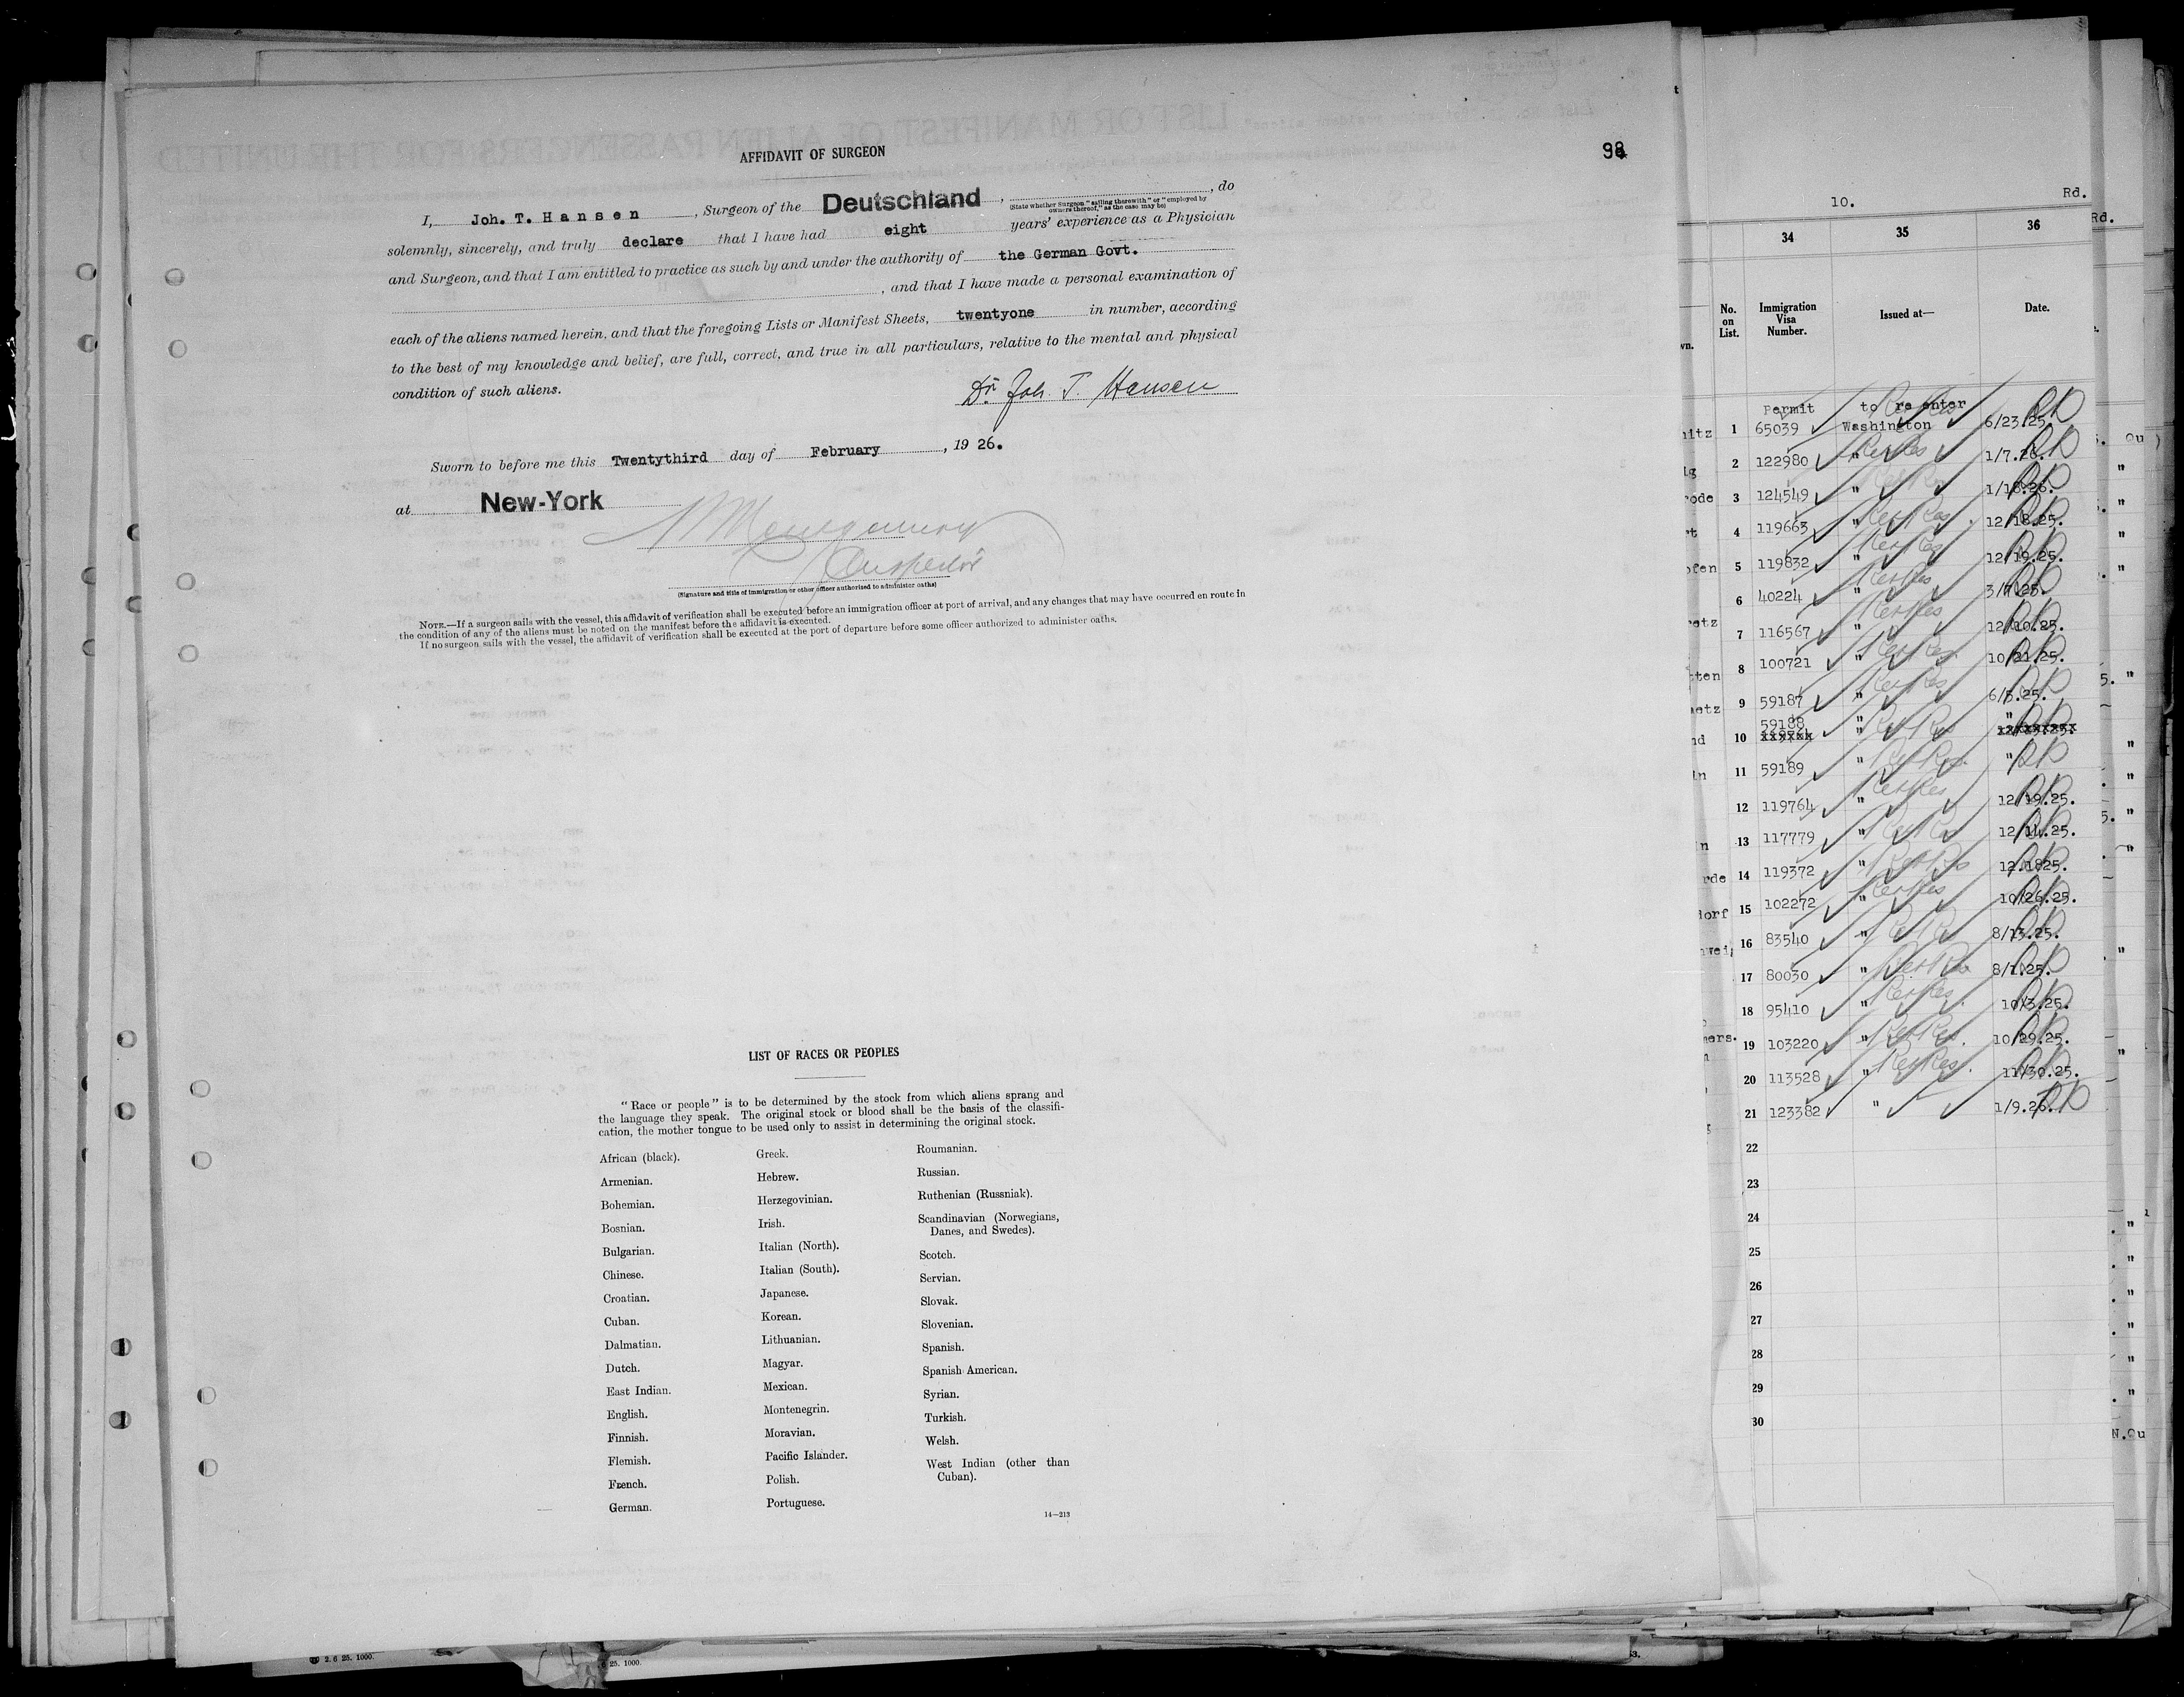 AFFIDAVIT OF SURGEON
I, Joh. T. Hansen, Surgeon of the Deutschland, , do
(State whether Surgeon "sailing therewith" or "employed by
owners thereof," as the case may be)
solemnly, sincerely, and truly declare that I have had eight years' experience as a Physician
and Surgeon, and that I am entitled to practice as such by and under the authority of the German Govt.
, and that I have made a personal examination of
each of the aliens named herein, and that the foregoing Lists or Manifest Sheets, twentyone in number, according
to the best of my knowledge and belief, are full, correct, and true in all particulars, relative to the mental and physical
condition of such aliens.
Dr. Joh. T. Hansen
Sworn to before me this Twentythird day of February, 19 26.
at New-York
Montgomery
Inspector
(Signature and title of immigration or other officer authorized to administer oaths)
NOTE.—If a surgeon sails with the vessel, this affidavit of verification shall be executed before an immigration officer at port of arrival, and any changes that may have occurred en route in
the condition of any of the aliens must be noted on the manifest before the affidavit is executed.
If no surgeon sails with the vessel, the affidavit of verification shall be executed at the port of departure before some officer authorized to administer oaths.
LIST OF RACES OR PEOPLES
"Race or people" is to be determined by the stock from which aliens sprang and
the language they speak. The original stock or blood shall be the basis of the classifi-
cation, the mother tongue to be used only to assist in determining the original stock.
African (black).
Armenian.
Bohemian.
Bosnian.
Bulgarian.
Chinese.
Croatian.
Cuban.
Dalmatian.
Dutch.
East Indian.
English.
Finnish.
Flemish.
French.
German.
Greek.
Hebrew.
Herzegovinian.
Irish.
Italian (North).
Italian (South).
Japanese.
Korean.
Lithuanian.
Magyar.
Mexican.
Montenegrin.
Moravian.
Pacific Islander.
Polish.
Portuguese.
Roumanian.
Russian.
Ruthenian (Russniak).
Scandinavian (Norwegians,
Danes, and Swedes).
Scotch.
Servian.
Slovak.
Slovenian.
Spanish.
Spanish American.
Syrian.
Turkish.
Welsh.
West Indian (other than
Cuban).
14—213
10. Rd.
34 35 36
No. on List. Immigration Visa Number. Issued at— Date.
Permit to re enter
1 65039 Washington 6/23.25.
2 122980 " 1/7.26.
3 124549 " 1/18.26.
4 119663 " 12/18.25.
5 119832 " 12/19.25.
6 40224 " 3/7.25.
7 116567 " 12/10.25.
8 100721 " 10/21.25.
9 59187 " 6/5.25.
10 59188 " "
11 59189 " "
12 119764 " 12/19.25.
13 117779 " 12/14.25.
14 119372 " 12.1825.
15 102272 " 10/26.25.
16 83540 " 8/13.25.
17 80030 " 8/1.25.
18 95410 " 10/3.25.
19 103220 " 10/29.25.
20 113528 " 11/30.25.
21 123382 " 1/9.26.
22
23
24
25
26
27
28
29
30
2. 6 25. 1000.
25. 1000.